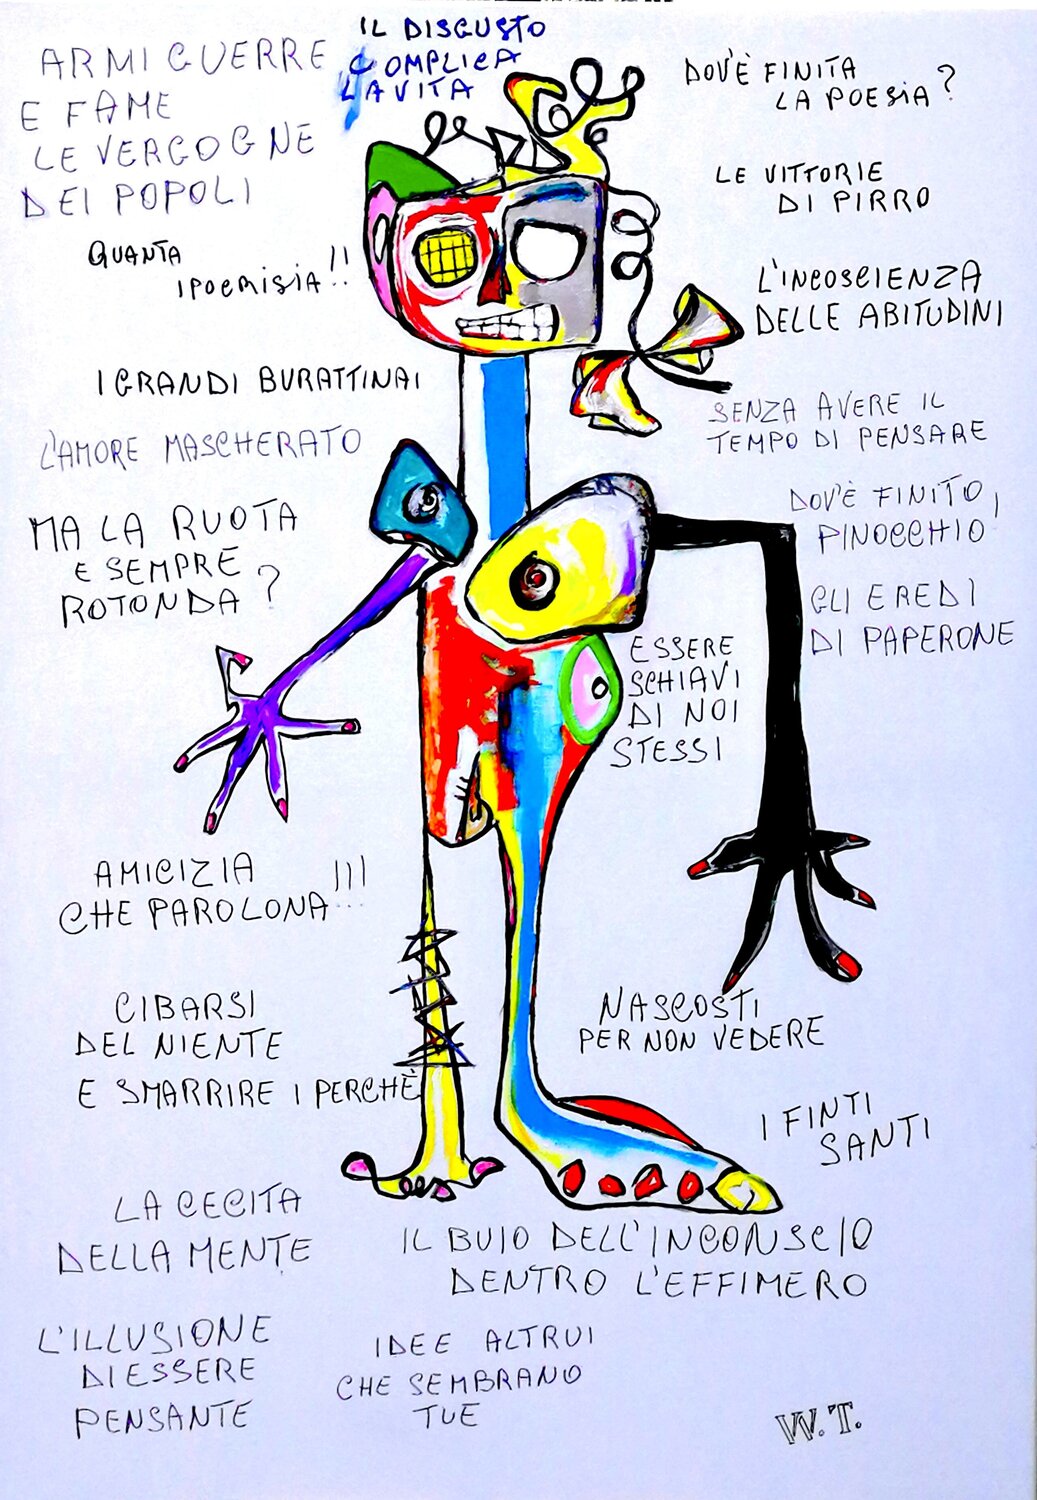 IL DISGUSTO
COMPLICA
LA VITA
ARMI GUERRE
E FAME
LE VERGOGNE
DEI POPOLI
DOV'È FINITA
LA POESIA?
LE VITTORIE
DI PIRRO
QUANTA
IPOCRISIA!!
L'INCOSCIENZA
DELLE ABITUDINI
I GRANDI BURATTINAI
SENZA AVERE IL
TEMPO DI PENSARE
L'AMORE MASCHERATO
DOV'È FINITO,
PINOCCHIO
MA LA RUOTA
E SEMPRE
ROTONDA?
GLI EREDI
DI PAPERONE
ESSERE
SCHIAVI
DI NOI
STESSI
AMICIZIA
CHE PAROLONA!!!
CIBARSI
DEL NIENTE
E SMARRIRE I PERCHÈ
NASCOSTI
PER NON VEDERE
I FINTI
SANTI
LA CECITA
DELLA MENTE
IL BUIO DELL'INCONSCIO
DENTRO L'EFFIMERO
L'ILLUSIONE
DI ESSERE
PENSANTE
IDEE ALTRUI
CHE SEMBRANO
TUE
W.T.